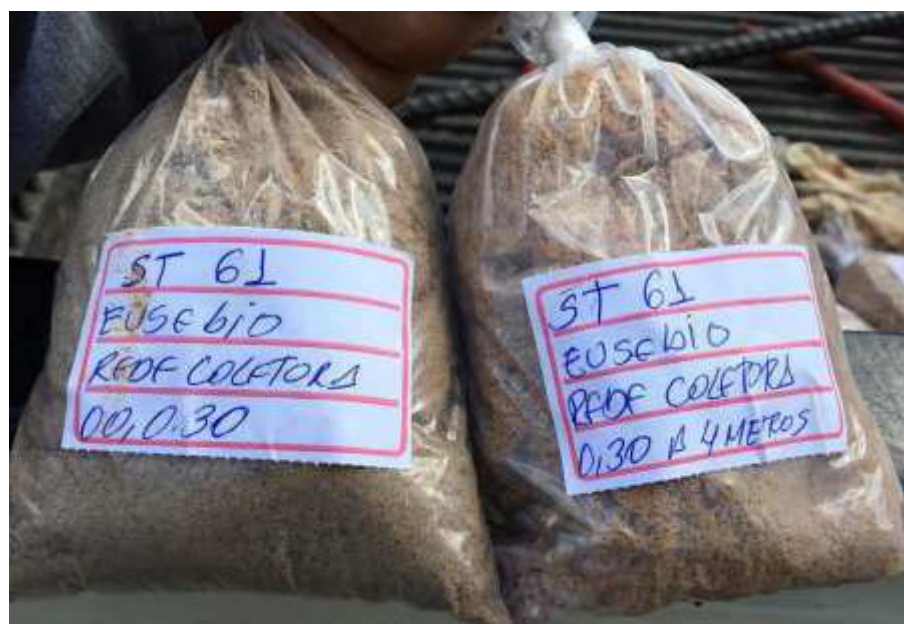 ST 61
EUSEbiO
REDE COLETORA
00,0.30
ST 61
EUSEbiO
REDE COLETORA
0,30 A 4 METROS